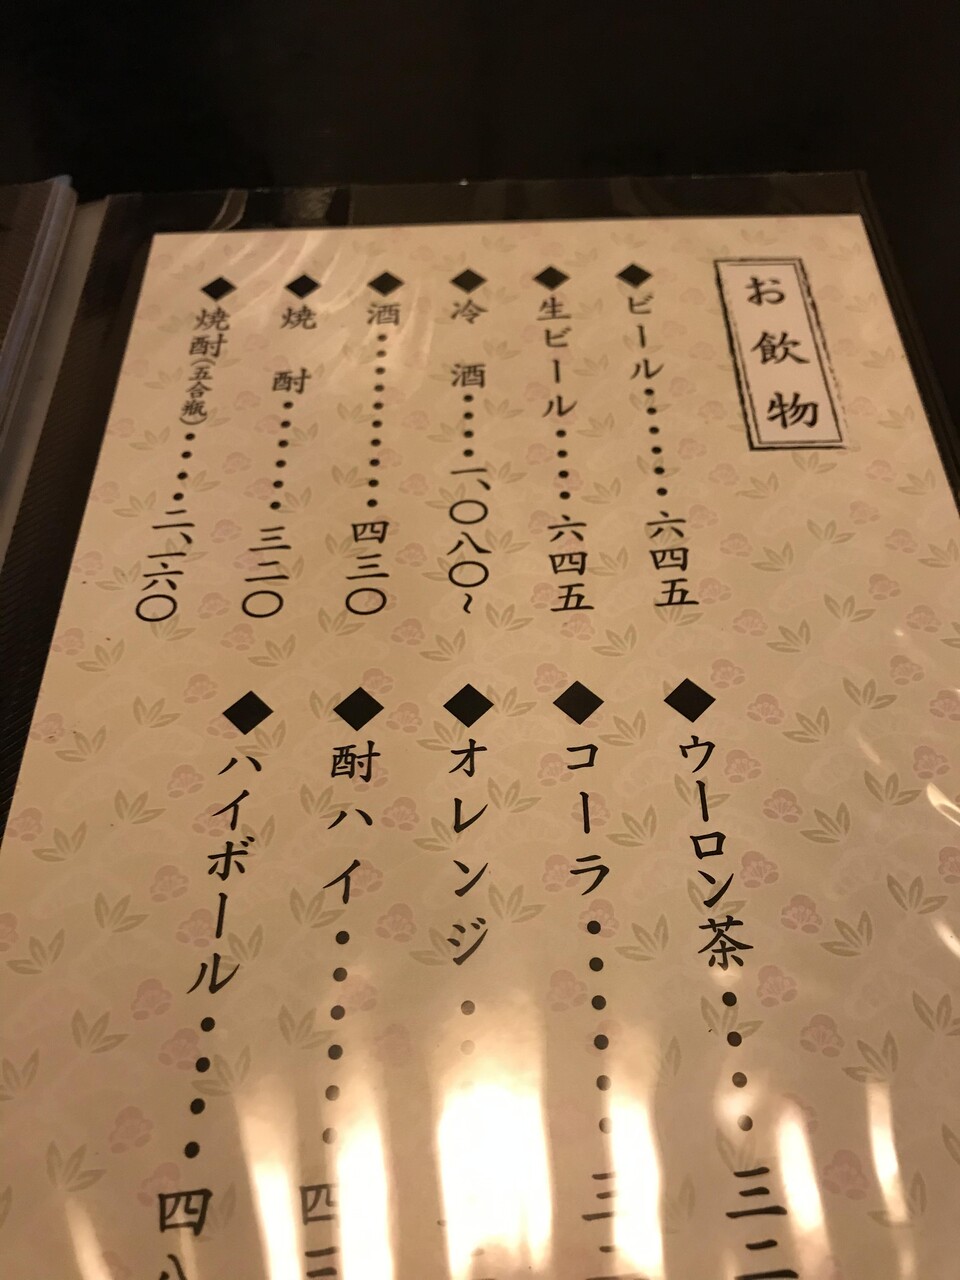 お飲物
◆ビール・・・・・・六四五
◆生ビール・・・・六四五
◆冷　酒・・・・一、〇八〇～
◆酒・・・・・・・・・・四三〇
◆焼　酎・・・・・・三二〇
◆焼酎(五合瓶)・・・・二、一六〇
◆ウーロン茶・・・・三二
◆コーラ・・・・・・三
◆オレンジ・・
◆酎ハイ・・・・・・四三
◆ハイボール・・・・四八